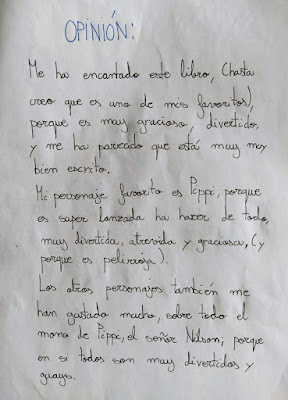 OPINIÓN:
Me ha encantado este libro, (hasta
creo que es uno de mis favoritos),
porque es muy gracioso, divertido,
y me ha pareado que está muy muy
bien escrito.
Mi personaje favorito es Pippi, porque
es super lanzada ha hacer de todo,
muy divertida, atrevida y graciosa, (y
porque es pelirroja).
Los otros personajes también me
han gustado mucho, sobre todo el
mono de Pippi, el señor Nilson, porque
en si todos son muy divertidos y
guays.